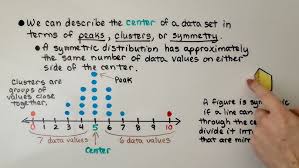 • We can describe the center of a data set in
terms of peaks, clusters, or symmetry.
• A symmetric distribution has approximately
the same number of data values on either
side of the center.
Clusters are
groups of
values close
together.
Peak
0 1 2 3 4 5 6 7 8 9 10
7 data values
6 data values
Center
A figure is symm
if a line can
through the c
divide it int
that are mirr